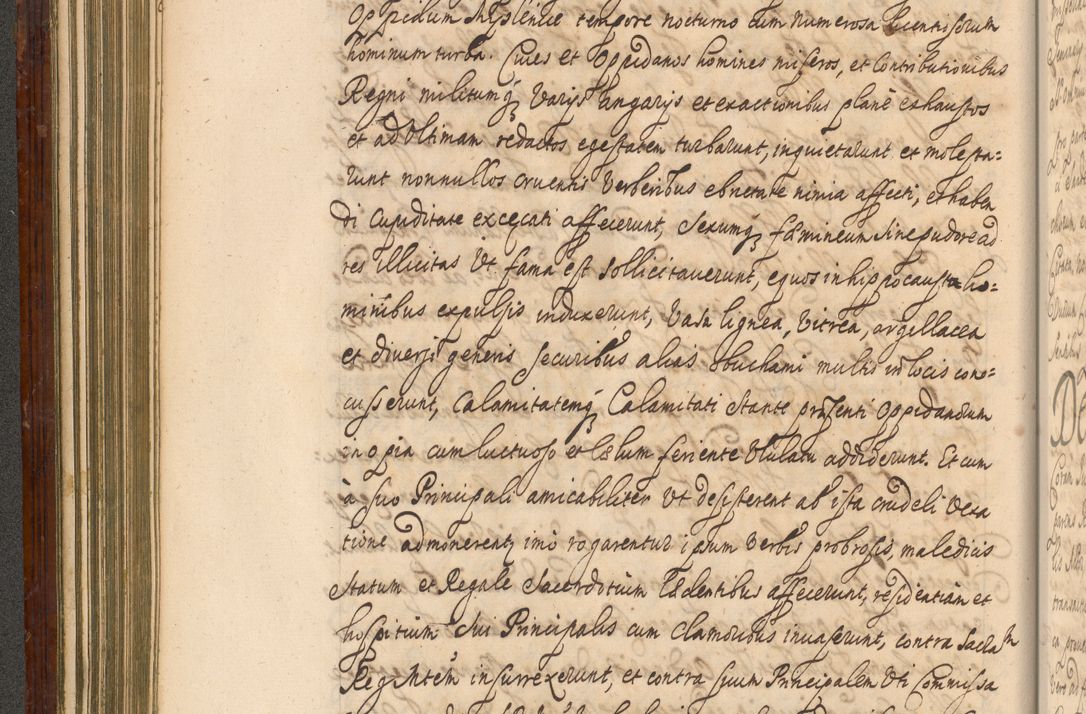 Oppidum Myslenice tempore nocturno cum numerosa licentiosorum
hominum turba. Cives et Oppidanos homines miseros, et Contributionibus
Regni militumq; Varijs angarijs et exactionibus planè exhaustos
et ad Vltimam redactos egestatem turbarunt, inquietarunt et molesta=
runt nonnullos cruentis Verberibus ebrietate nimia affecti, et haben
di Cupiditate excęcati affecerunt, Sexumq; fæmineum sine pudore ad
res illicitas Vt fama est sollicitaverunt, equos in hippocausta ho=
minibus expulsis induxerunt, Vasa lignea, Vitrea, argillacea
et diversi generis securibus alias Obuchami multis in locis conc=
cusserunt, Calamitatemq; Calamitati stante præsenti Oppidanorum
inopia cum luctuoso et Cælum feriente Vlulatu addiderunt. Et cum
à suo Principali amicabiliter Vt desisterent ab ista crudeli Vexa
tione admonerentur imò rogarentur ipsum Verbis probrosis, maledicis
Statum et Regale Sacerdotium Lædentibus affecerunt, residentiam et
hospitium sui Principalis cum clamoribus invaserunt, contra Sacram
Reg Mtem insurrexerunt, et contra suum Principalem Vti Commissa